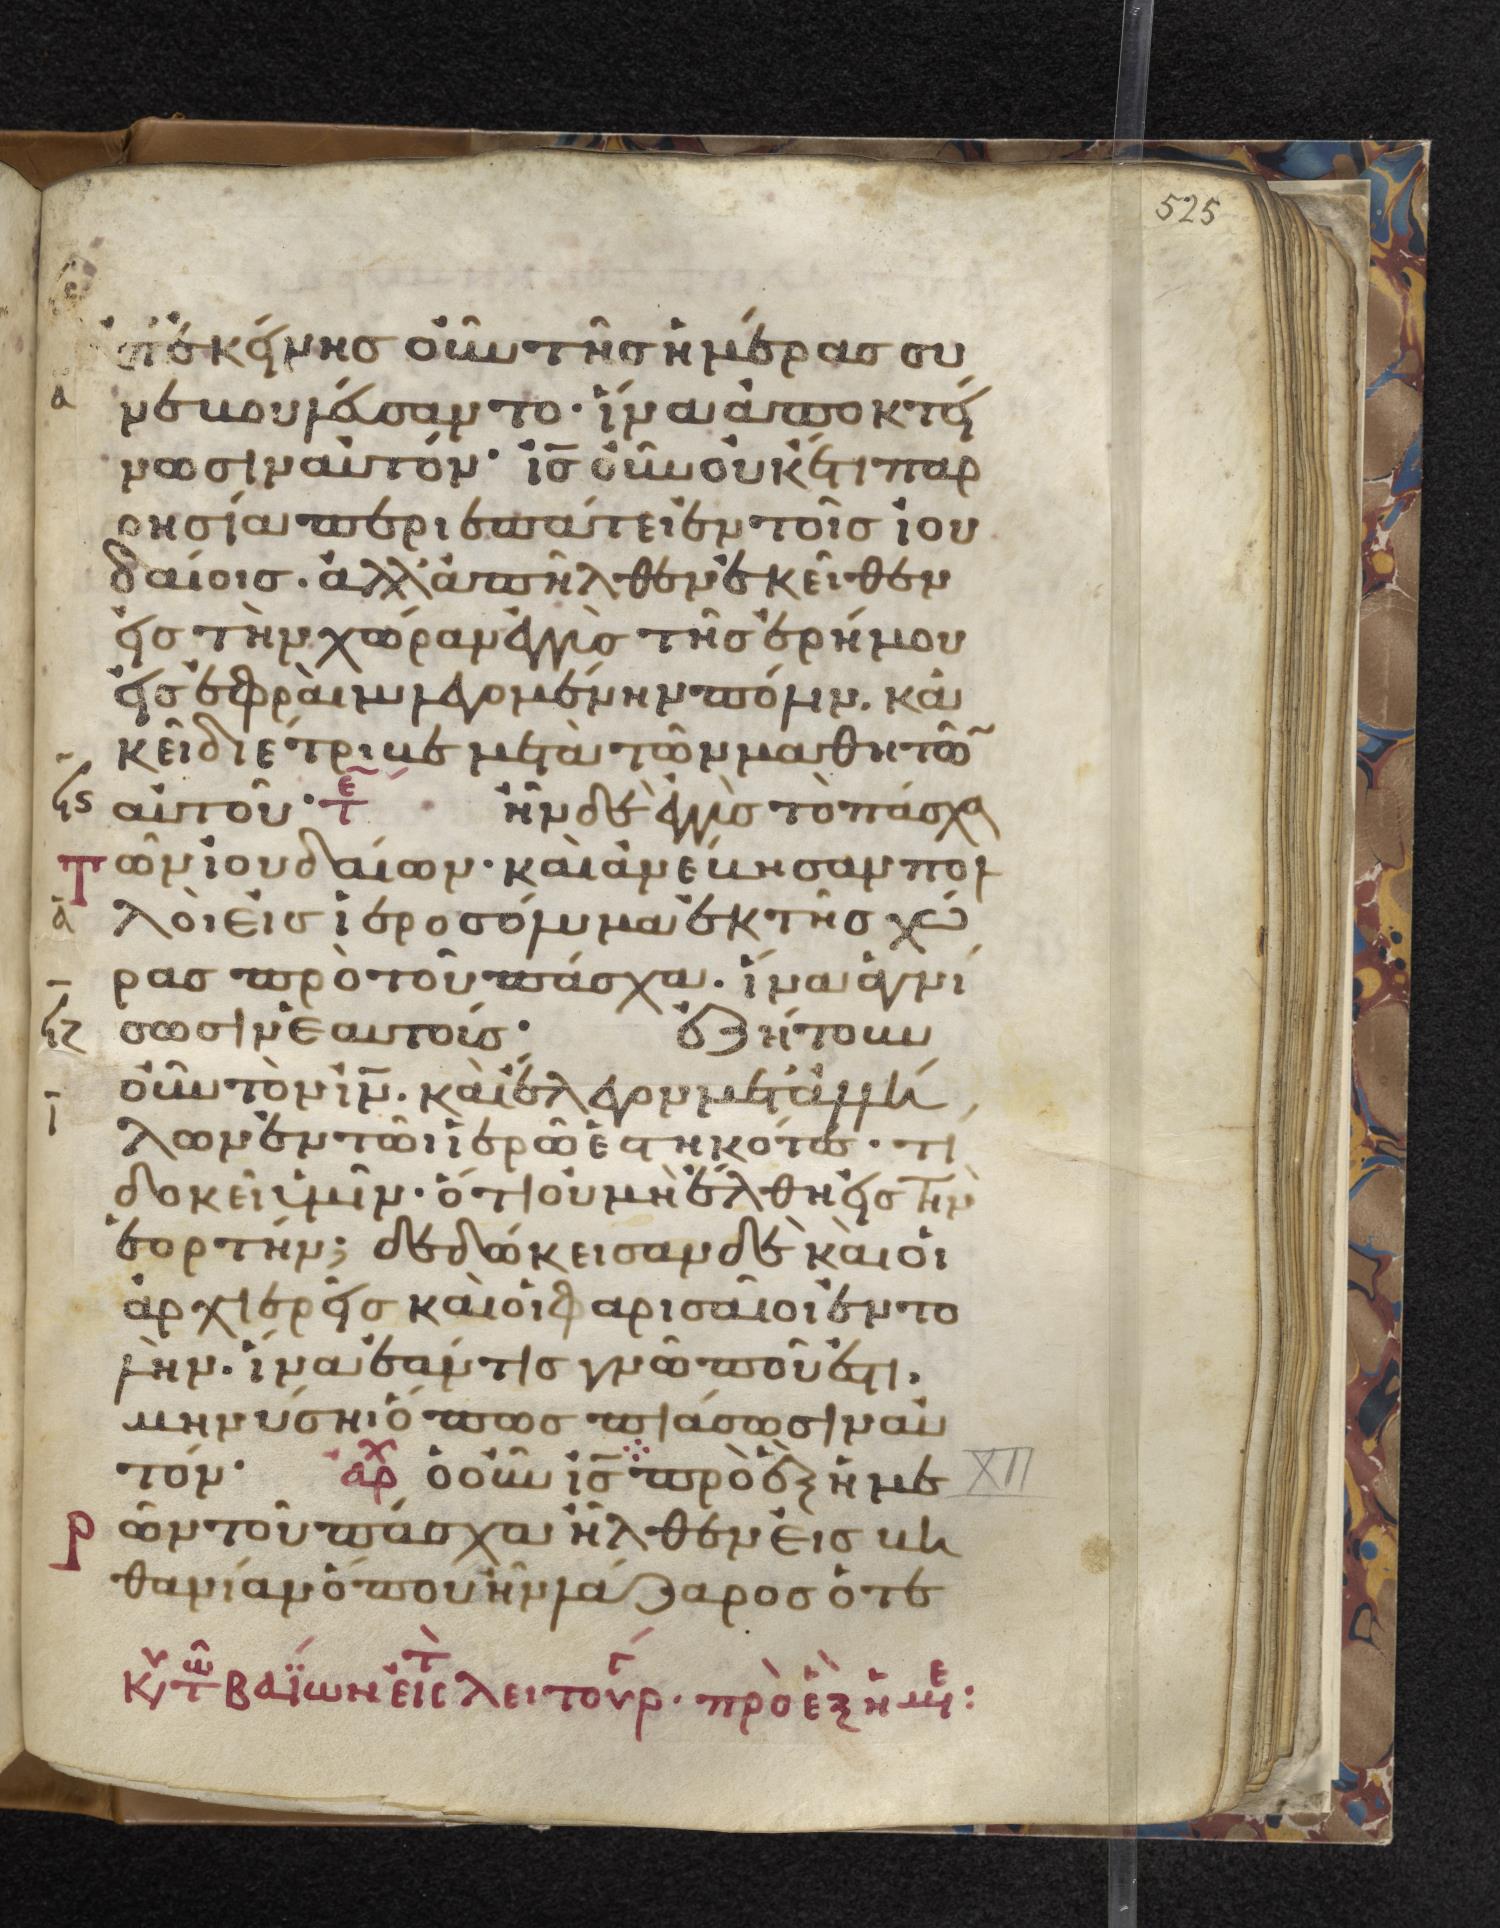 525
ἀπ' ἐκείνησ οὖν τῆσ ἡμέρασ συ
νεβουλεύσαντο· ἵνα ἀποκτεί
νωσιν αὐτόν· ἰσ̄ οὖν οὐκέτι παρ
ρησία περιεπάτει ἐν τοῖσ ἰου
δαίοισ. ἀλλ' ἀπῆλθεν ἐκεῖθεν
εἰσ τὴν χώραν ἐγγὺσ τῆσ ἐρήμου
εἰσ ἐφραὶμ λεγομένην πόλιν. κα
κεῖ διέτριβε μετὰ τῶν μαθητῶ̄
ϟς αὐτοῦ· τε̄ ἦν δὲ ἐγγὺσ τὸ πάσχα
Τῶν ἰουδαίων· καὶ ἀνέβησαν πολ
λὸι εἰσ ἱεροσόλυμα ἐκ τῆσ χώ
ρασ πρὸ τοῦ πάσχα. ἵνα ἁγνί
ϟζ σωσιν ἑαυτούσ· ἐζήτουν
οὖν τὸν ἰν̄. καὶ ἔλεγον μετ' ἀλλή
λων ἐν τῶι ἱερῶ ἑστηκότεσ· τί
δοκεῖ ὑμῖν· ὅτι οὐ μὴ ἔλθη εἰσ τὴν
ἑορτήν; δεδώκεισαν δὲ καὶ οἱ
ἀρχιερεῖσ καὶ οἱ φαρισαῖοι ἐντο
λὴν. ἵνα ἐάν τισ γνῶ ποῦ ἐστι.
μηνύσηι ὅπωσ πιάσωσιν αὐ
τόν· ἀρχ ὁ οὖν ἰσ̄ πρὸ ἓξ ἡμε XII
ρῶν τοῦ πάσχα ἦλθεν εἰσ βη
θανίαν ὅπου ἦν λάζαροσ ὁ τε
Κυ τῶν βαΐων εἰσ τ λειτουργ· πρὸ ἓξ ἡμε: